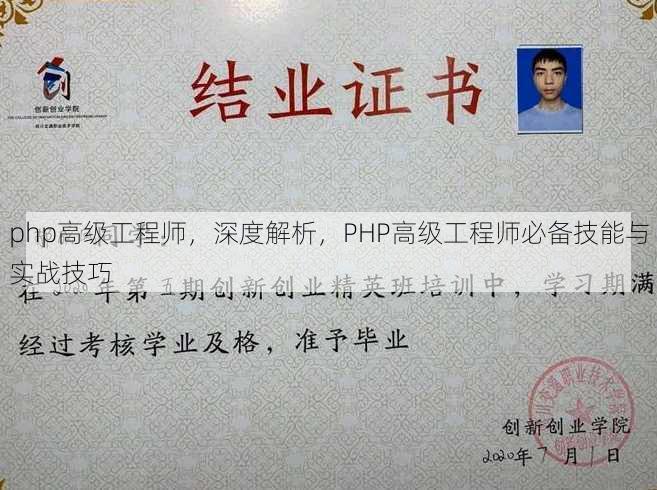 创新创业学院
结业证书
php高级工程师，深度解析，PHP高级工程师必备技能与
实战技巧
在2020年第五期创新创业精英班培训中，学习期满
经过考核学业及格，准予毕业
川交通职业技术学院
创新创业学院
创新创业学院
2020年7月1日